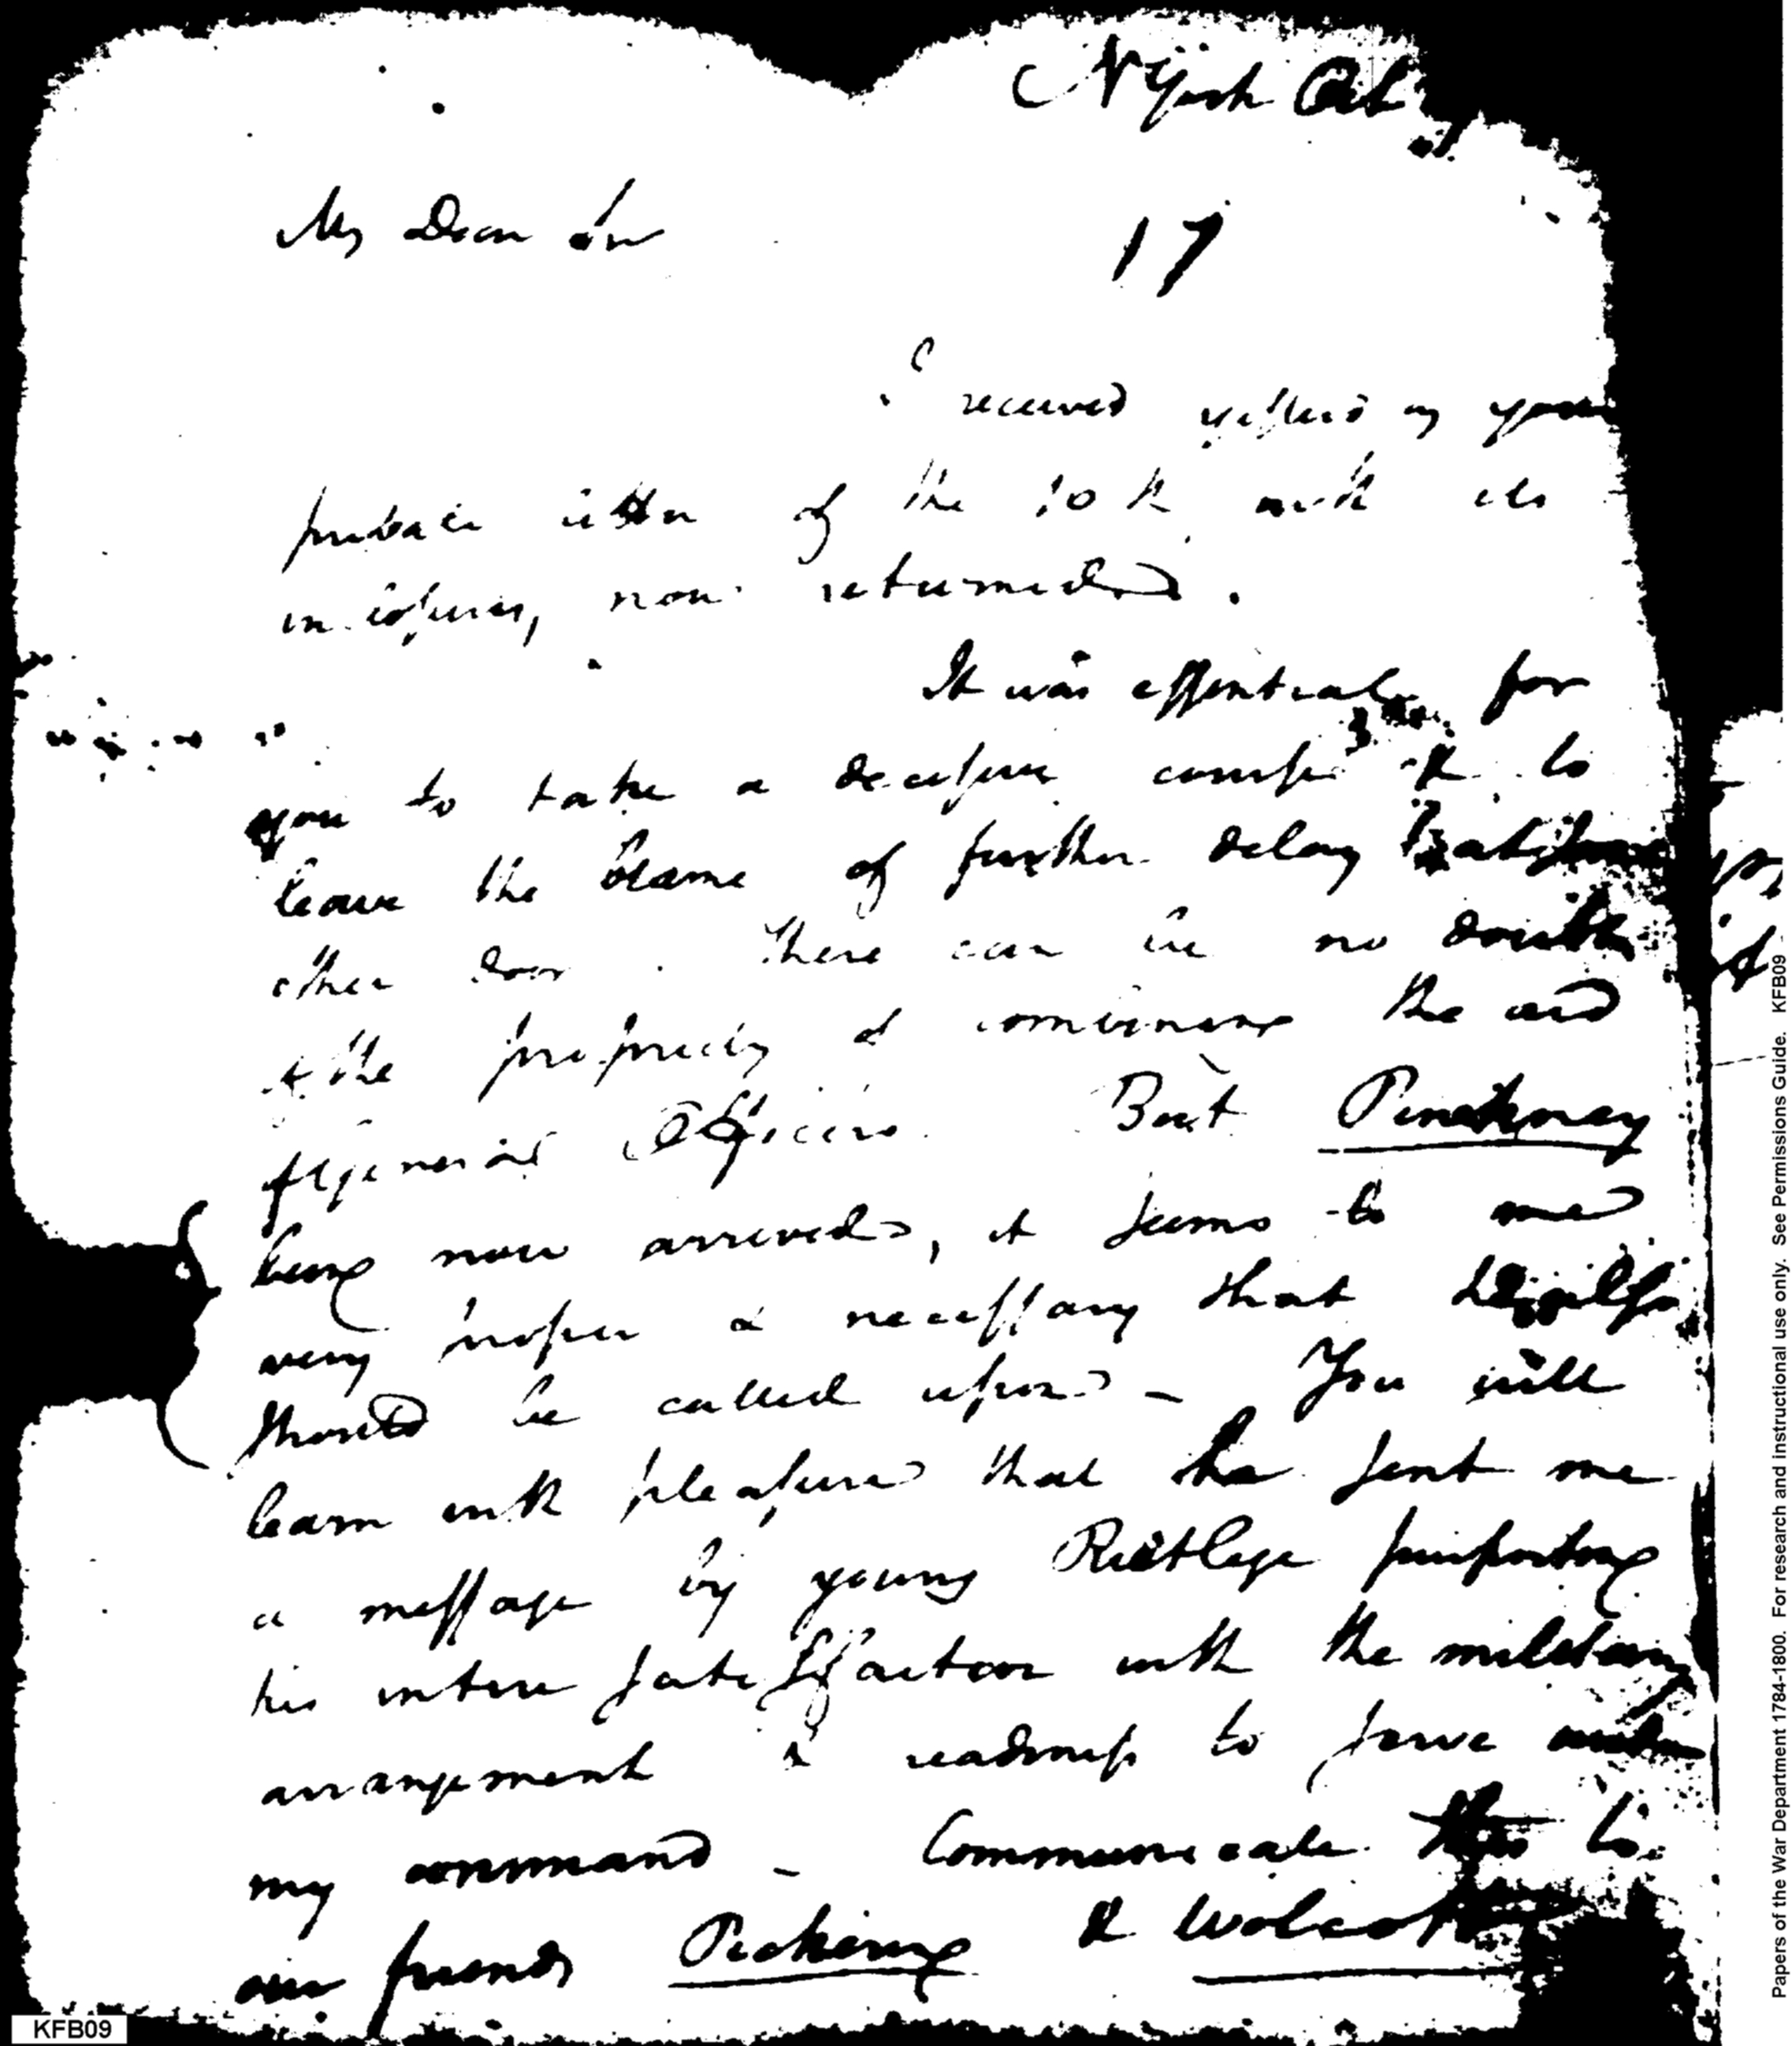 N York Oct
My Dear Sir
17
I received yesterday your
private letter of the 10th with its
inclosures, now returned.
It was essential for
you to take a decisive course & to
leave the blame of further delay at
other door. There can be no doubt
of the propriety of combining the aid
of General Officers. But Pinckney
being now arrived, it seems to me
very proper & necessary that he also
should be called upon – You will
learn with pleasure that he sent me
a message by young Rutlege purporting
his intire satisfaction with the military
arrangement & readiness to serve under
my command – Communicate this to
our friends Pickering & Wolcott
KFB09
Papers of the War Department 1784-1800. For research and instructional use only. See Permissions Guide. KFB09